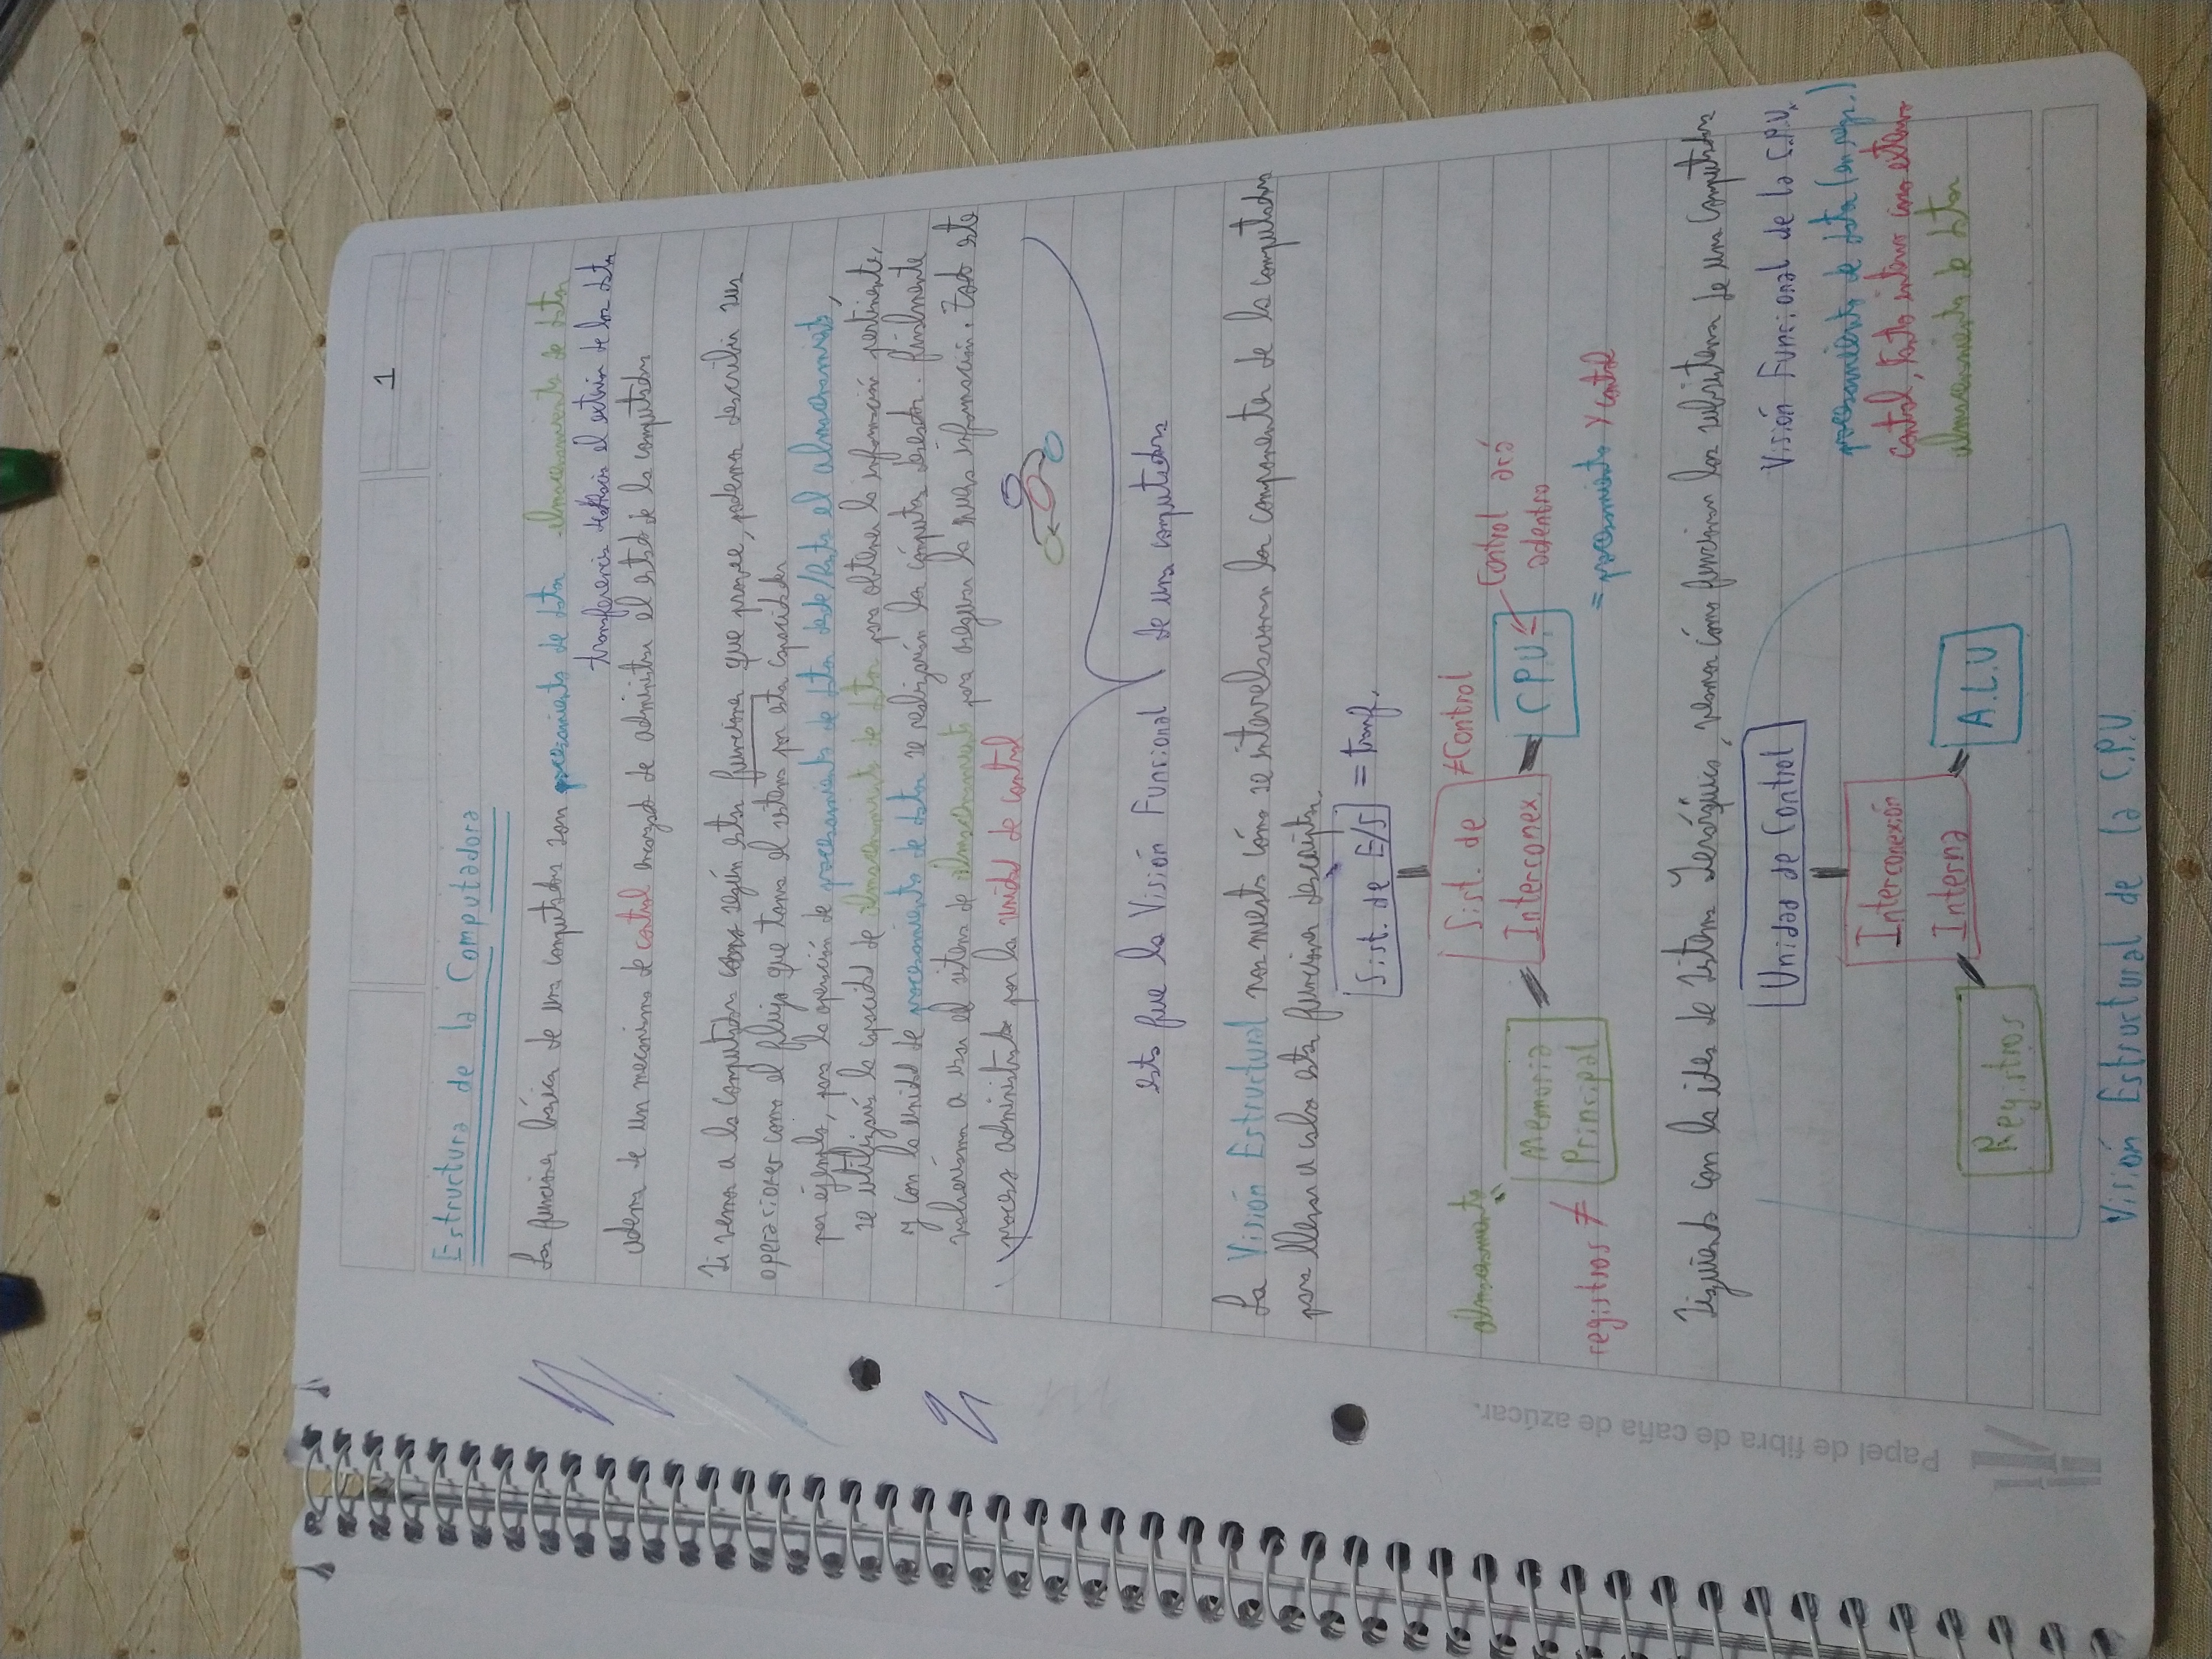 1
Estructura de la Computadora
Las funciones básicas de una computadora son procesamiento de datos almacenamiento de datos
transferencia desde/hacia el exterior de los datos
ademas de un mecanismo de control encargado de administrar el estado de la computadora
Si vemos a la computadora según estas funciones que provee, podemos describir sus
operaciones como el flujo que toma el sistema por estas capacidades
por ejemplo, para la operación de procesamiento de datos desde/hasta el almacenamiento,
se utilizará la capacidad de almacenamiento de datos para obtener la información pertinente,
y con la unidad de procesamiento de datos se realizarán los cómputos deseados. finalmente
volveríamos a usar el sistema de almacenamiento para asegurar la nueva información. Todo este
proceso administrado por la unidad de control
esta fue la Visión Funcional de una computadora
La Visión Estructural nos muestra cómo se interrelacionan los componentes de la computadora
para llevar a cabo estas funciones descriptas.
Sist. de E/S = transf.
almacenamiento
Sist. de Interconex. ≠ Control
Memoria Principal
C.P.U.
Control acá adentro
registros ≠
= procesamiento y control
Siguiendo con la idea de Sistema Jerárquico, veamos cómo funcionan los subsistemas de una Computadora
Unidad de Control
Visión Funcional de la C.P.U.
procesamiento de datos (en regs.)
Interconexión Interna
control, tanto interno como externo
almacenamiento de datos
Registros
A.L.U
Visión Estructural de la C.P.U.
Papel de fibra de caña de azúcar.